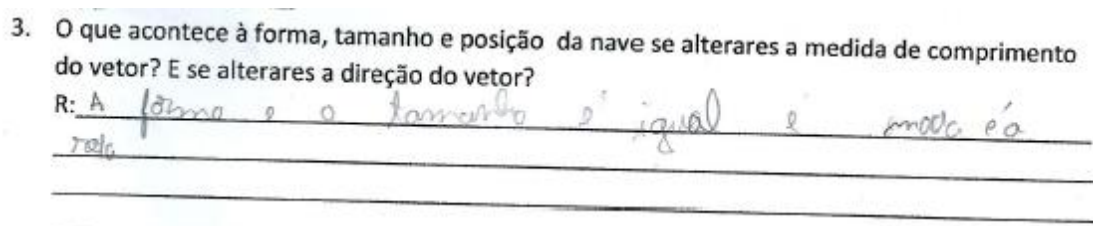 3. O que acontece à forma, tamanho e posição da nave se alterares a medida de comprimento
do vetor? E se alterares a direção do vetor?
R: A forma e o tamanho é igual e moda é a